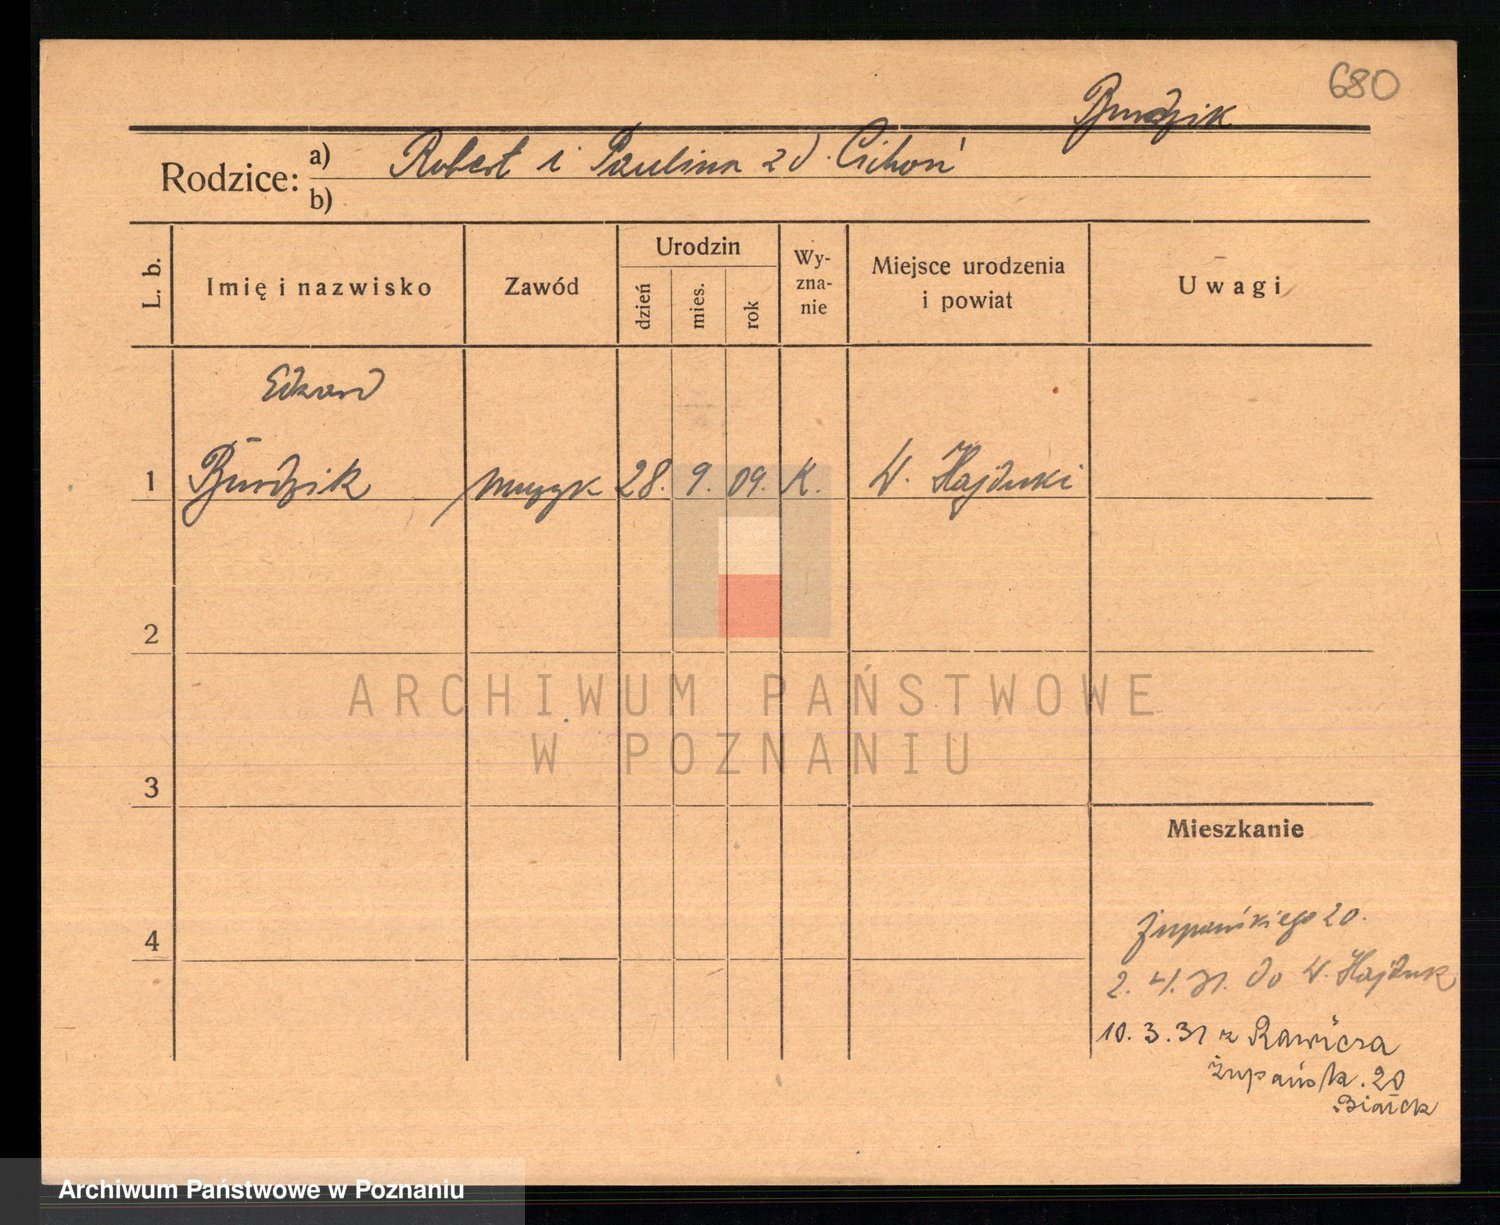 680
Burdzik
Rodzice: a) Robert i Paulina zd. Cichoń
b)
L. b.
Imię i nazwisko
Zawód
Urodzin
dzień
mies.
rok
Wy-
zna-
nie
Miejsce urodzenia
i powiat
Uwagi
Edward
1 Burdzik muzyk 28. 9. 09. K. W. Hajduki
2
3
4
Mieszkanie
Żupańskiego 20.
2. 4. 31. do W. Hajduk
10. 3. 31 z Rawicza
Żupańsk. 20
ARCHIWUM PAŃSTWOWE
W POZNANIU
Archiwum Państwowe w Poznaniu